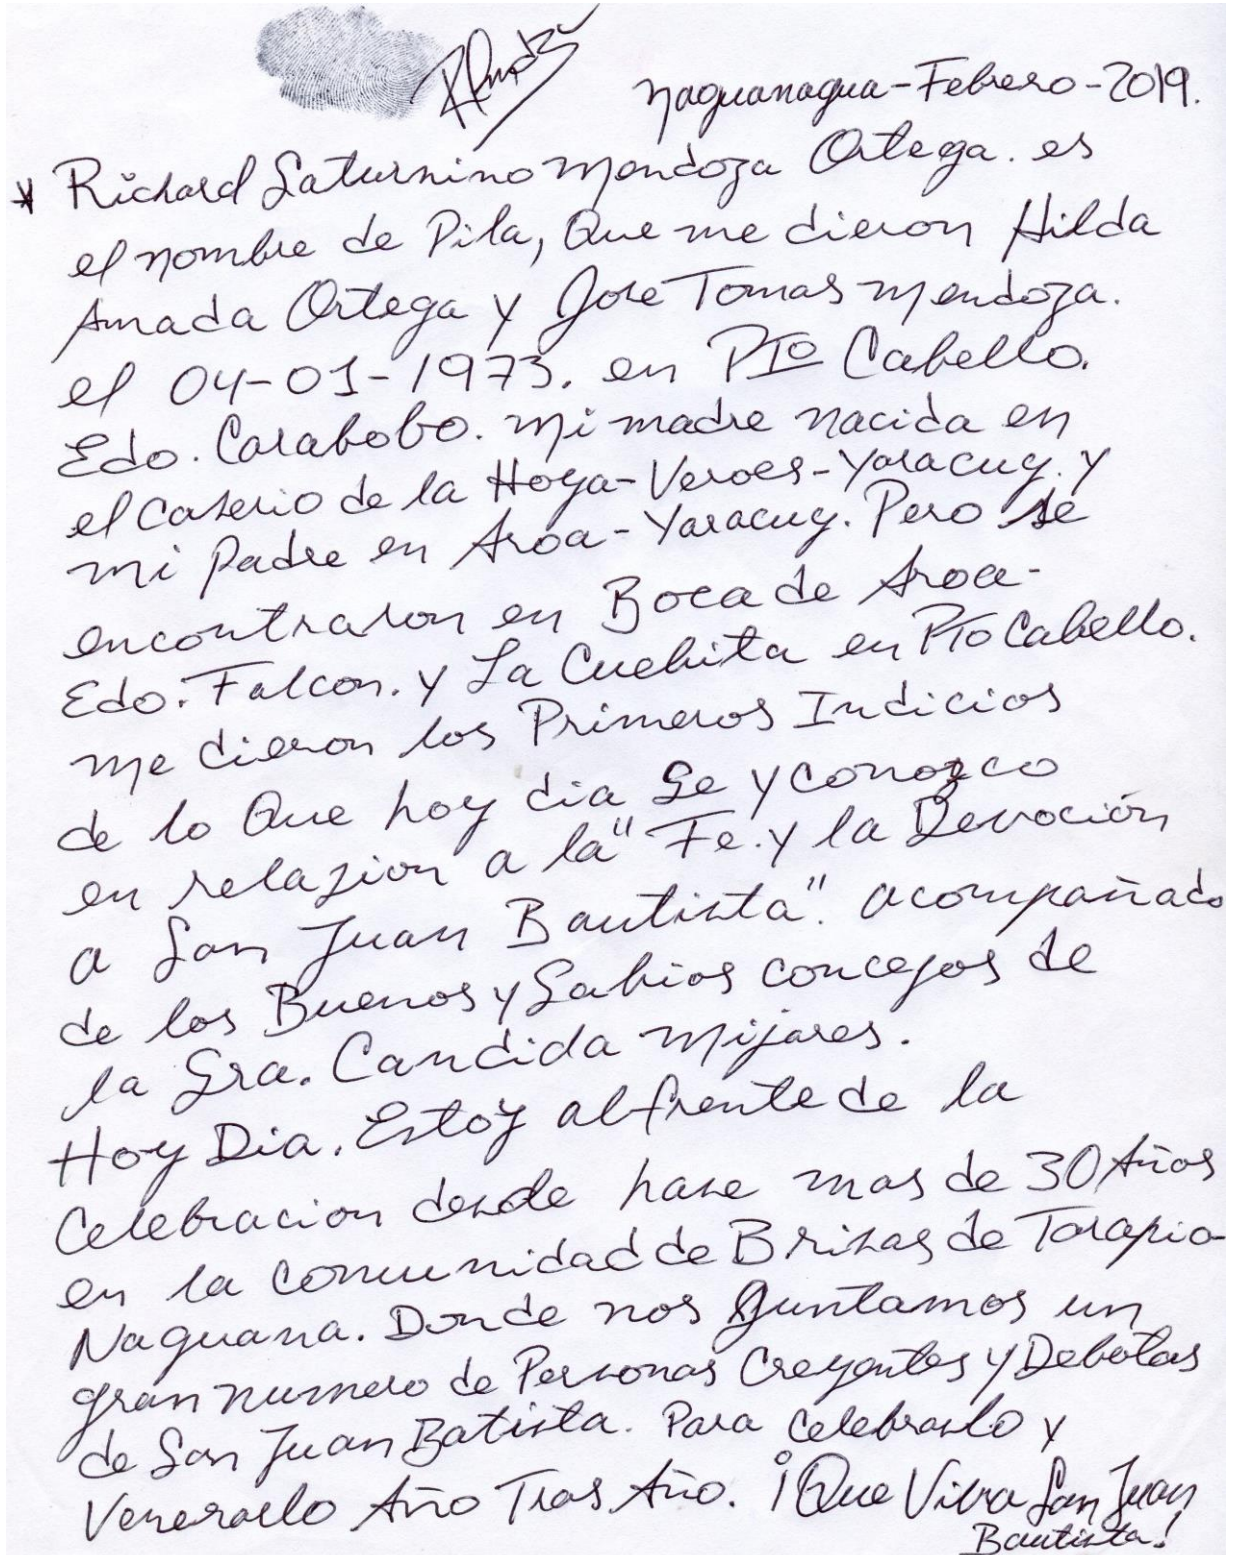 Naguanagua-Febrero-2019.
* Richard Saturnino Mendoza Ortega. es
el nombre de Pila, Que me dieron Hilda
Amada Ortega y Jose Tomas Mendoza.
el 04-01-1973. en Pto Cabello.
Edo. Carabobo. Mi madre nacida en
el Caserio de la Hoya-Veroes-Yaracuy. y
mi Padre en Aroa-Yaracuy. Pero se
encontraron en Boca de Aroa-
Edo. Falcon. y La Cuebita en Pto Cabello.
me dieron los Primeros Indicios
de lo Que hoy dia Se y conozco
en relazion a la "Fe. y la Devoción
a San Juan Bautista". acompañado
de los Buenos y Sabios concejos de
la Sra. Candida Mijares.
Hoy Dia. Estoy al frente de la
Celebracion desde hase mas de 30 Años
en la Comunidad de Brisas de Tarapio-
Naguana. Donde nos Juntamos un
gran numero de Personas Creyentes y Debotas
de San Juan Batista. Para Celebrarlo y
Venerarlo Año Tras Año. ¡Que Viva San Juan
Bautista!